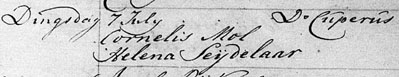 Dingsdag 7 July Ds Cuperus
Cornelis Mol
Helena Seydelaar